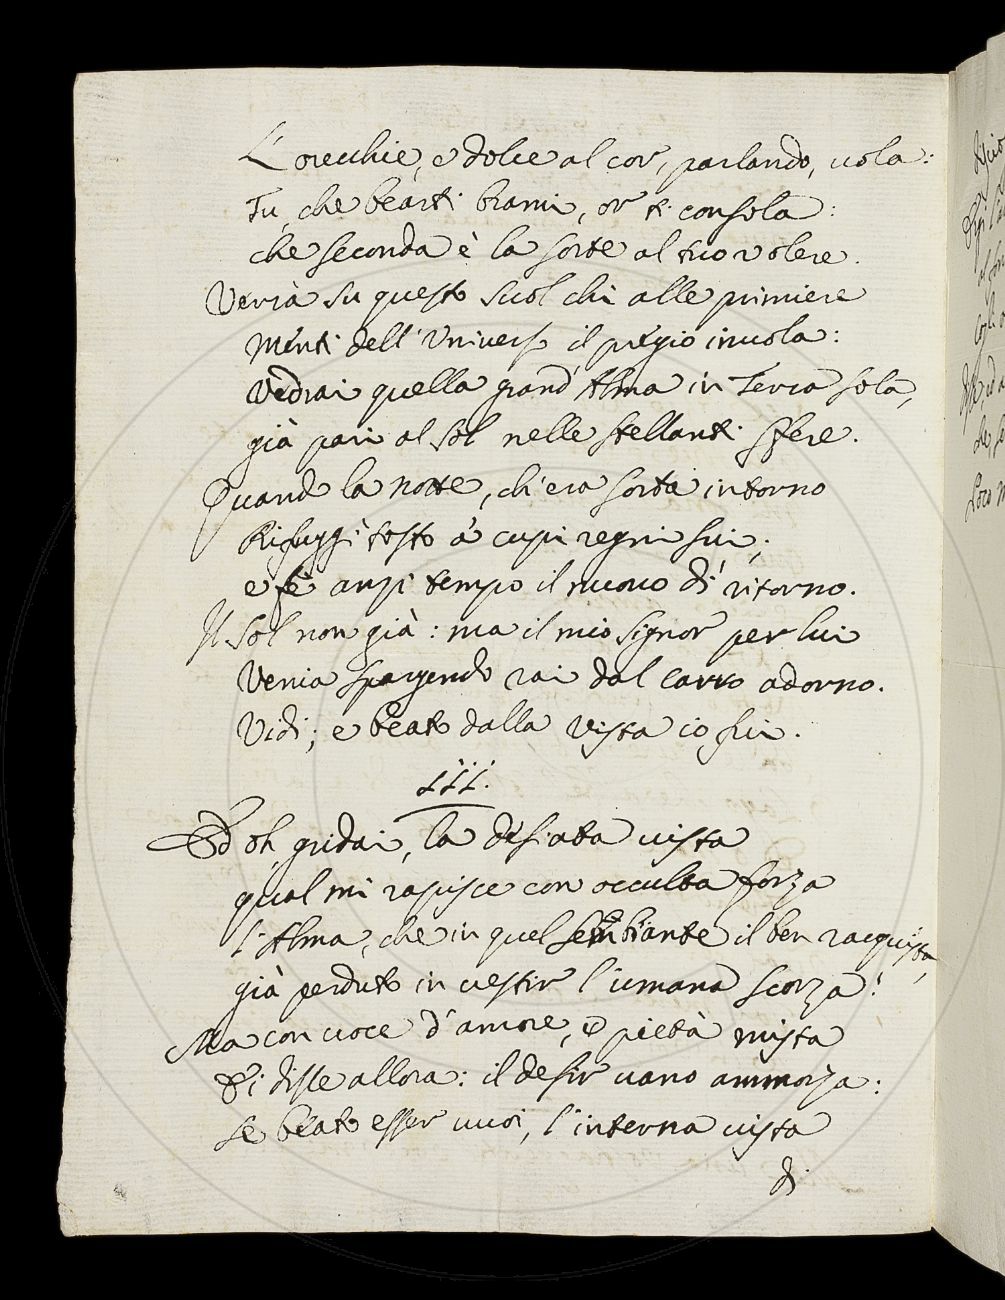 L' orecchie, e dolce al cor, parlando, uola:
Tu, che bearti brami, or ti consola:
che seconda è la sorte al tuo volere.
Verrà su questo suol chi alle primiere
Menti dell' Universo il pregio inuola:
Vedrai quella grand' Alma in Terra sola,
già pari al Sol nelle stellanti sfere.
Quando la notte, ch' era sorta intorno
Rifuggì tosto a' cupi regni sui,
e fè anzi tempo il nuouo dì ritorno.
Il Sol non già: ma il mio Signor per lui
Venia spargendo rai dal carro adorno.
Vidi; e beato dalla vista io fui.
III.
Ed oh, gridai, la desiata uista
qual mi rapisce con occulta forza
l' Alma, che in quel sembiante il ben racquista,
già perduto in uestir l' umana scorza!
Ma con uoce d' amore, e pietà mista
Ei disse allora: il desir uano ammorza:
se beato esser uuoi, l' interna uista
di